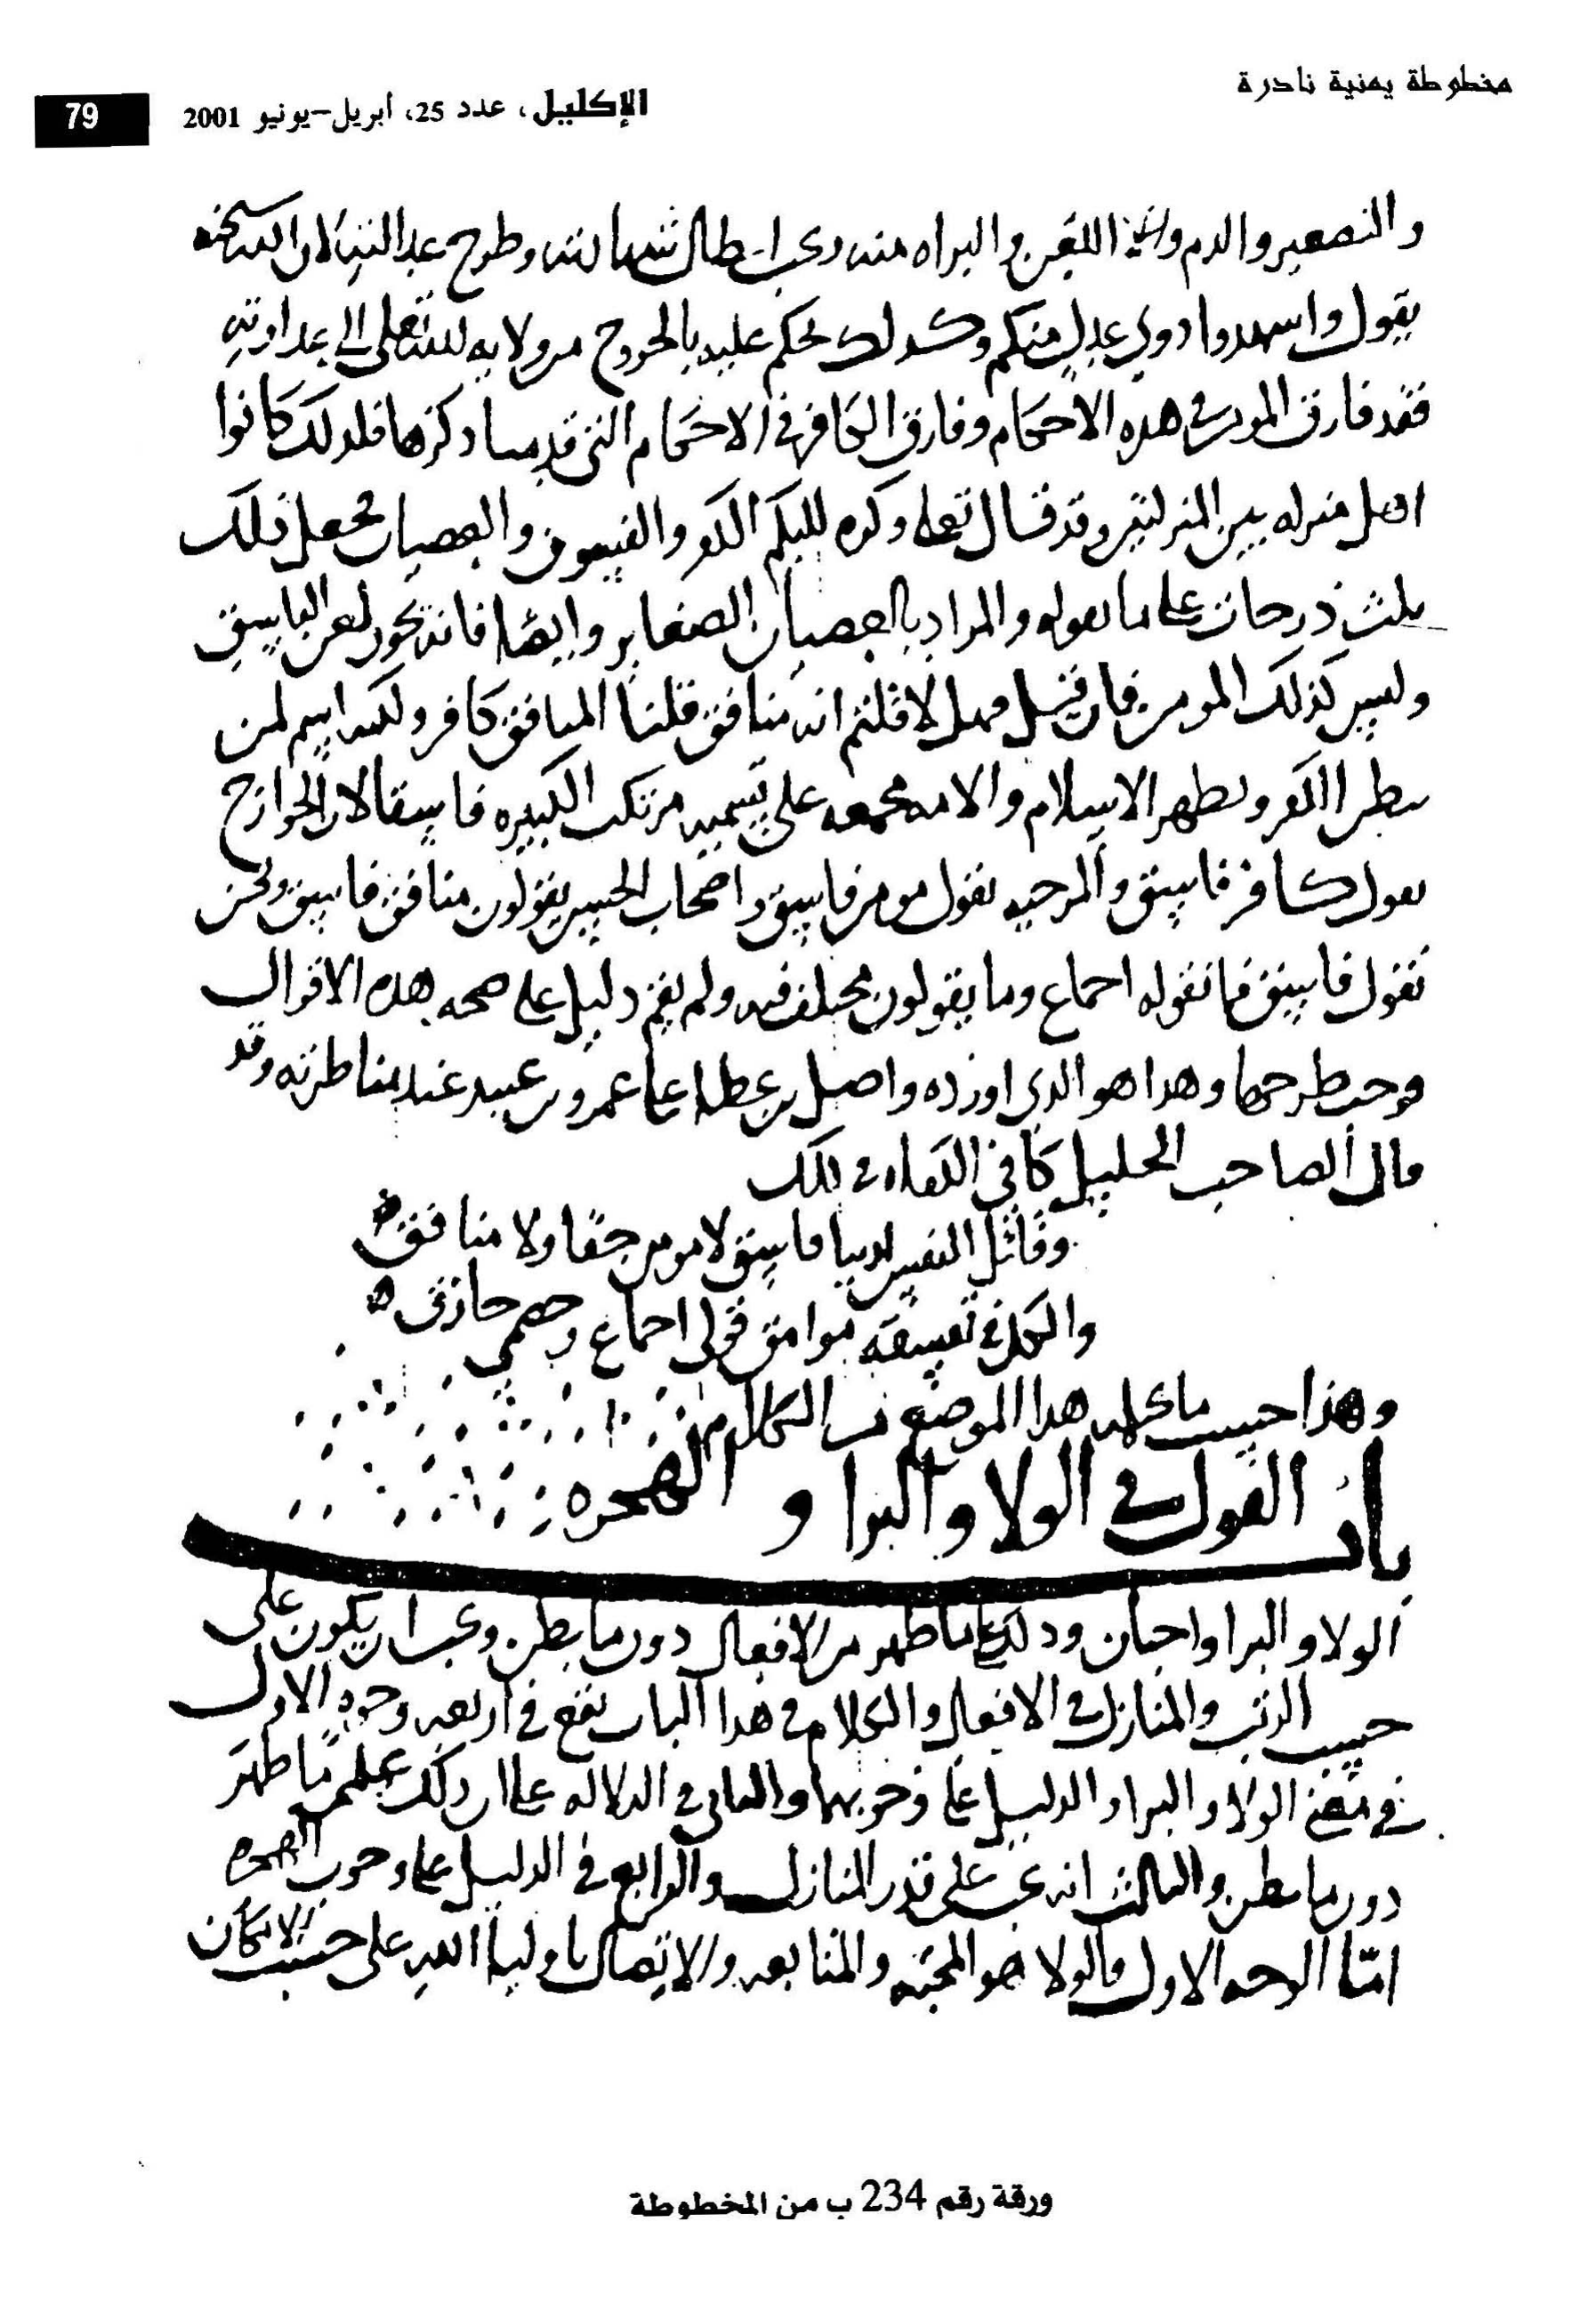 مخطوطة يمنية نادرة
الإكليل، عدد 25، ابريل-يونيو 2001
79
والتصغير والدم واللعن والبراه منه ويجب ابطال شهادته وطرح عدالته لان الله سبحنه
يقول واسهدوا دوي عدل منكم وكدلك يحكم عليه بالخروج من ولايه الله تعلى الى عداوته
فقد فارق المومن في هده الاحكام وفارق الكافر في الاحكام التي قدمنا دكرها فلدلك كانوا
اهل منزله بين المنزلتين وقد قال تعلى وكره اليكم الكفر والفسوق والعصيان فجعل ذلك
ثلث درحات على ما نقوله والمراد بالعصيان الصغاير وايضا فانه يجوز لعن الفاسق
وليس كذلك المومن فان قيل فهل لا قلتم انه منافق قلنا المنافق كافر ولكنه اسم لمن
يبطن الكفر ويظهر الاسلام والامه مجمعه على تسميه مرتكب الكبيره فاسقا لان الخوارج
تقول كافر فاسق والمرجيه تقول مومن فاسق واصحاب الحسن يقولون منافق فاسق ونحن
نقول فاسق فما نقوله اجماع وما يقولون مختلف فيه ولم يقم دليل على صحه هده الاقوال
فوجب طرحها وهدا هو الدي اورده واصل بن عطا على عمرو بن عبيد عند مناظرته وقد
قال الصاحب الجليل كافي الكفاه في ذلك
وقاتل النفس لدينا فاسق لا مومن حقا ولا منافق ه
والكل في تفسيقه موافق قولي اجماع وخصمي خارق ه
وهذا حسب ما يحتمله هدا الموضع من الكلام
باب القول في الولا والبرا و الهجره
الولا والبرا واجبان ودلك على ما ظهر من الافعال دون ما بطن ويجب ان يكون على
حسب الرتب والمنازل في الافعال والكلام في هدا الباب يقع في اربعه وجوه الاول
في معنى الولا والبرا والدليل على وجوبهما والثاني في الدلاله على ان دلك على ما ظهر
دون ما بطن والثالث انه يجب على قدر المنازل والرابع في الدليل على وجوب الهجره
امّا الوجه الاول فالولا هو المحبّه والمتابعه والاتصال باوليا الله على حسب الامكان
ورقة رقم 234 ب من المخطوطة